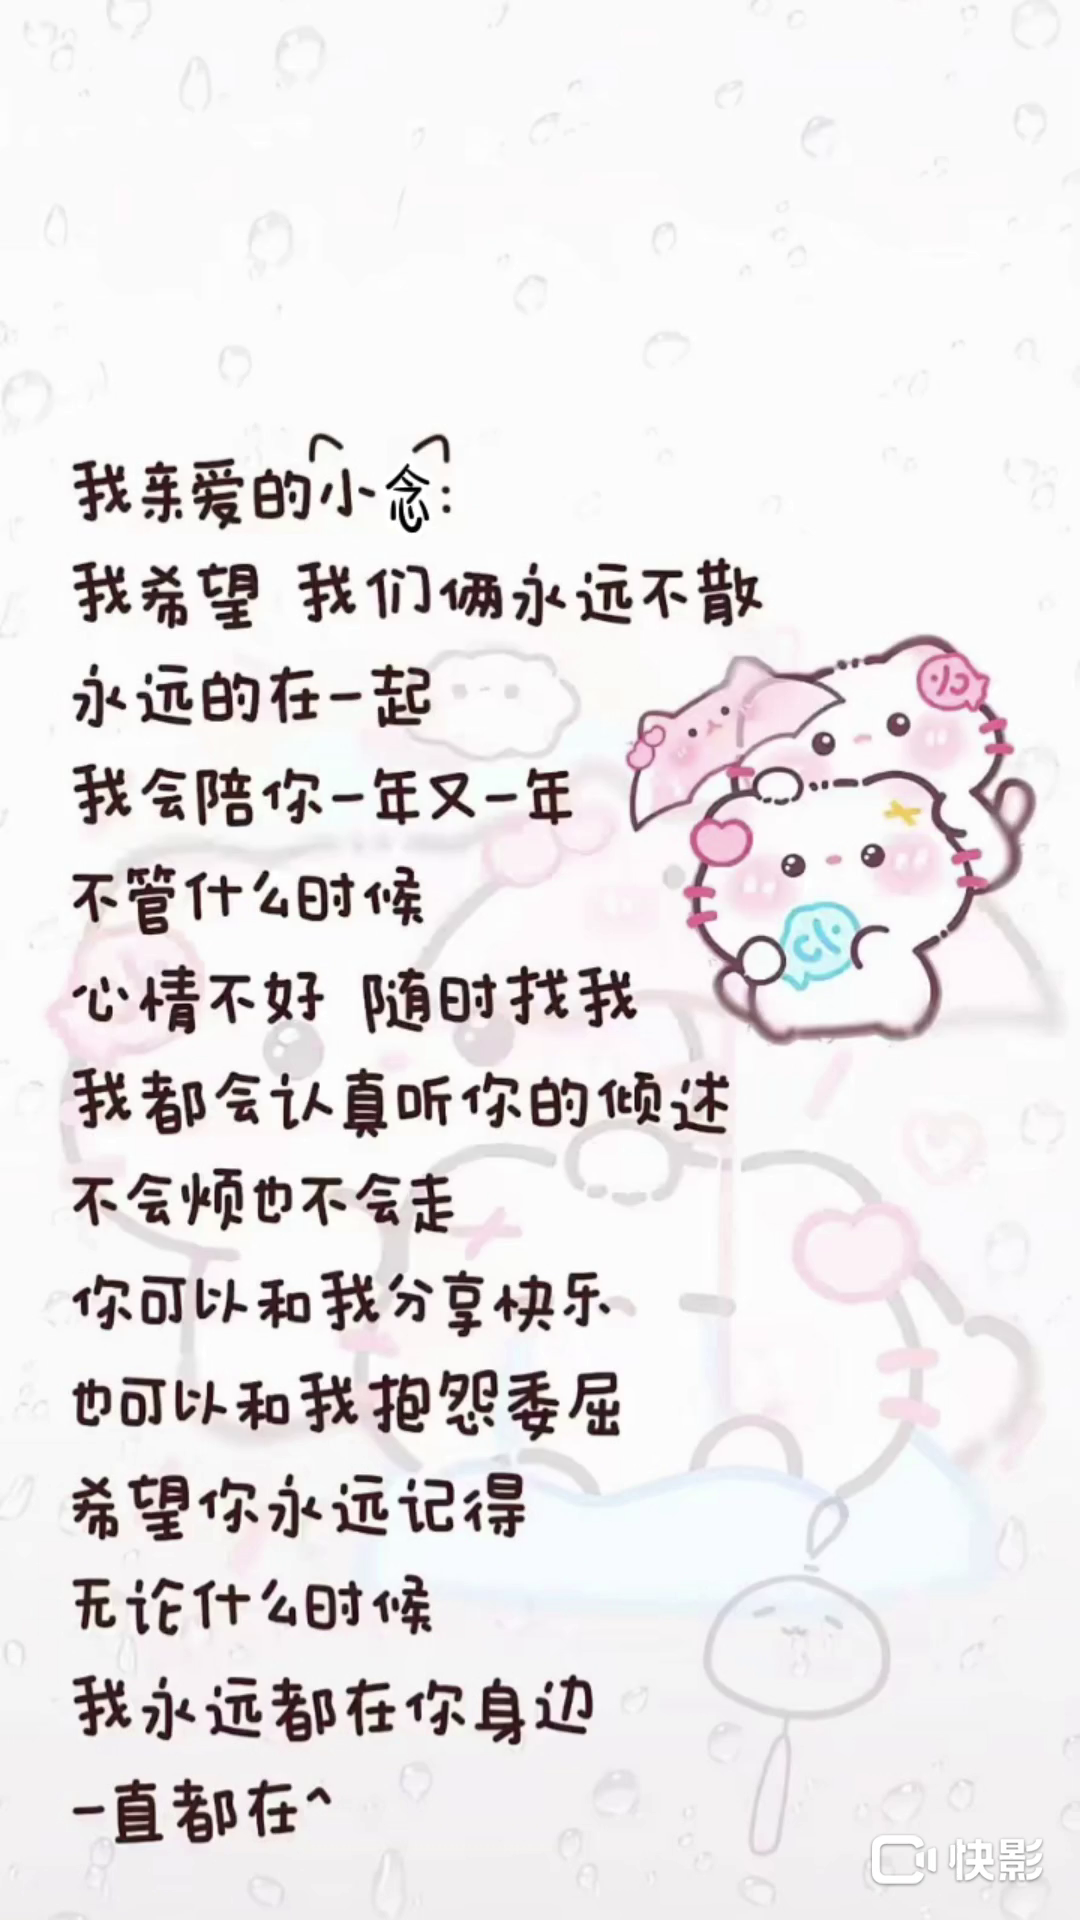 我亲爱的小念:
我希望 我们俩永远不散
永远的在一起
我会陪你一年又一年
不管什么时候
心情不好 随时找我
我都会认真听你的倾述
不会烦也不会走
你可以和我分享快乐
也可以和我抱怨委屈
希望你永远记得
无论什么时候
我永远都在你身边
一直都在^
快影